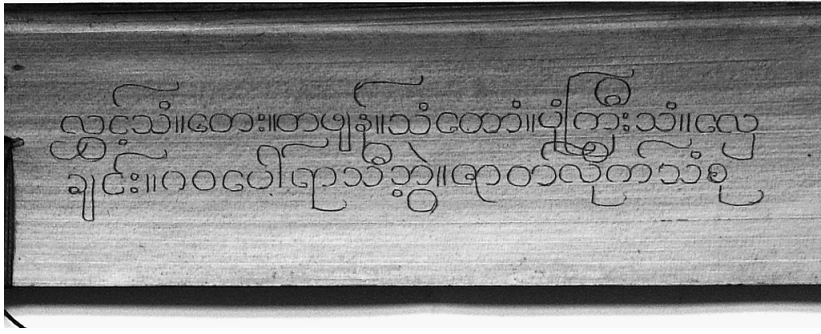 လွင့်သံ။တေး။တဖျန့်။သံတော်။ပုံကြီးသံ။လှေ
ချင်း။ဂဝပေါ်ရာသီဘွဲ့။ဇာတ်လိုက်သံစု